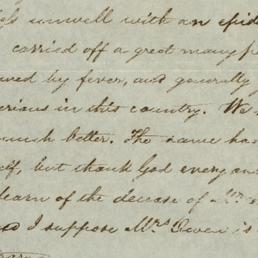 unwell with an epid
carried off a great many p
by fever, and generally
in this country. We
much better. The same ha
but thank God every on
learn of the decease of Mr.
I suppose Mrs. Owen is